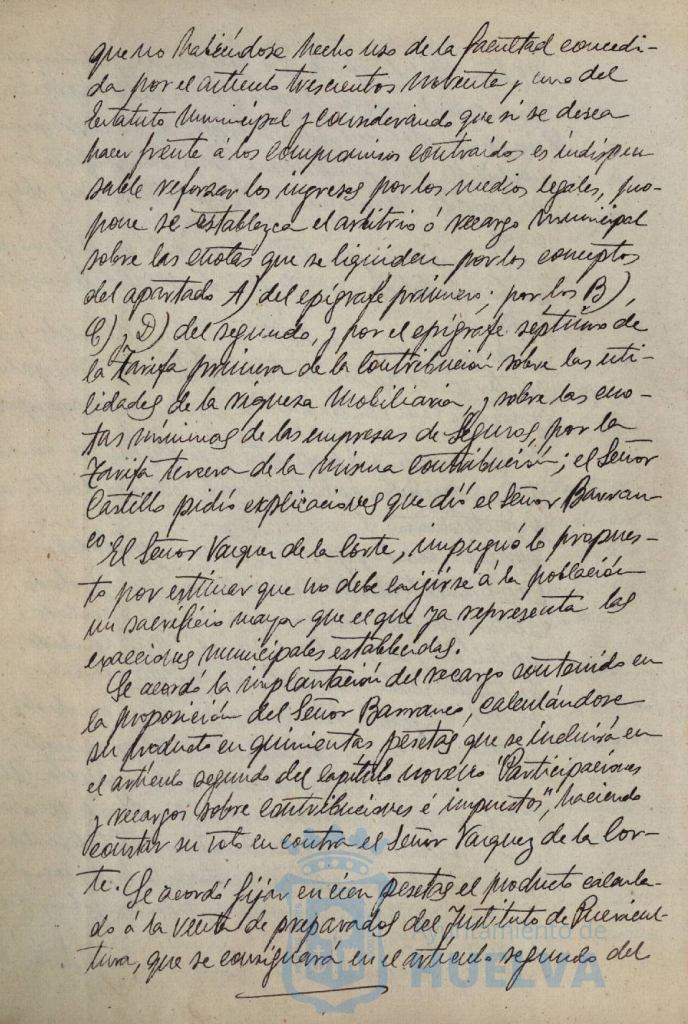 que no habiéndose hecho uso de la facultad concedi-
da por el artículo trescientos noventa y uno del
Estatuto Municipal y considerando que si se desea
hacer frente á los compromisos contraidos es indispen
sable reforzar los ingresos por los medios legales, pro-
pone se establezca el arbitrio ó recargo municipal
sobre las cuotas que se liquiden por los conceptos
del apartado A) del epígrafe primero; por los B),
C) y D) del segundo, y por el epígrafe séptimo de
la Tarifa primera de la Contribución sobre las uti-
lidades de la riqueza mobiliaria, y sobre las cuo-
tas mínimas de las empresas de Seguros, por la
Tarifa tercera de la misma contribución; el Señor
Castillo pidió explicaciones que dió el Señor Barran-
co El Señor Vazquez de la Corte, impugnó lo propues-
to por estimar que no debe exigirse á la población
un sacrificio mayor que el que ya representa las
exacciones municipales establecidas.
Se acordó la implantación del recargo contenido en
la proposición del Señor Barranco, calculándose
su producto en quinientas pesetas que se incluirá en
el artículo segundo del capítulo noveno "Participaciones
y recargos sobre contribuciones é impuestos", haciendo
constar su voto en contra el Señor Vazquez de la Cor-
te. Se acordó fijar en cien pesetas el producto calcula-
do á la venta de preparados del Instituto de Puericul-
tura, que se consignará en el artículo segundo del
Ayuntamiento de
HUELVA